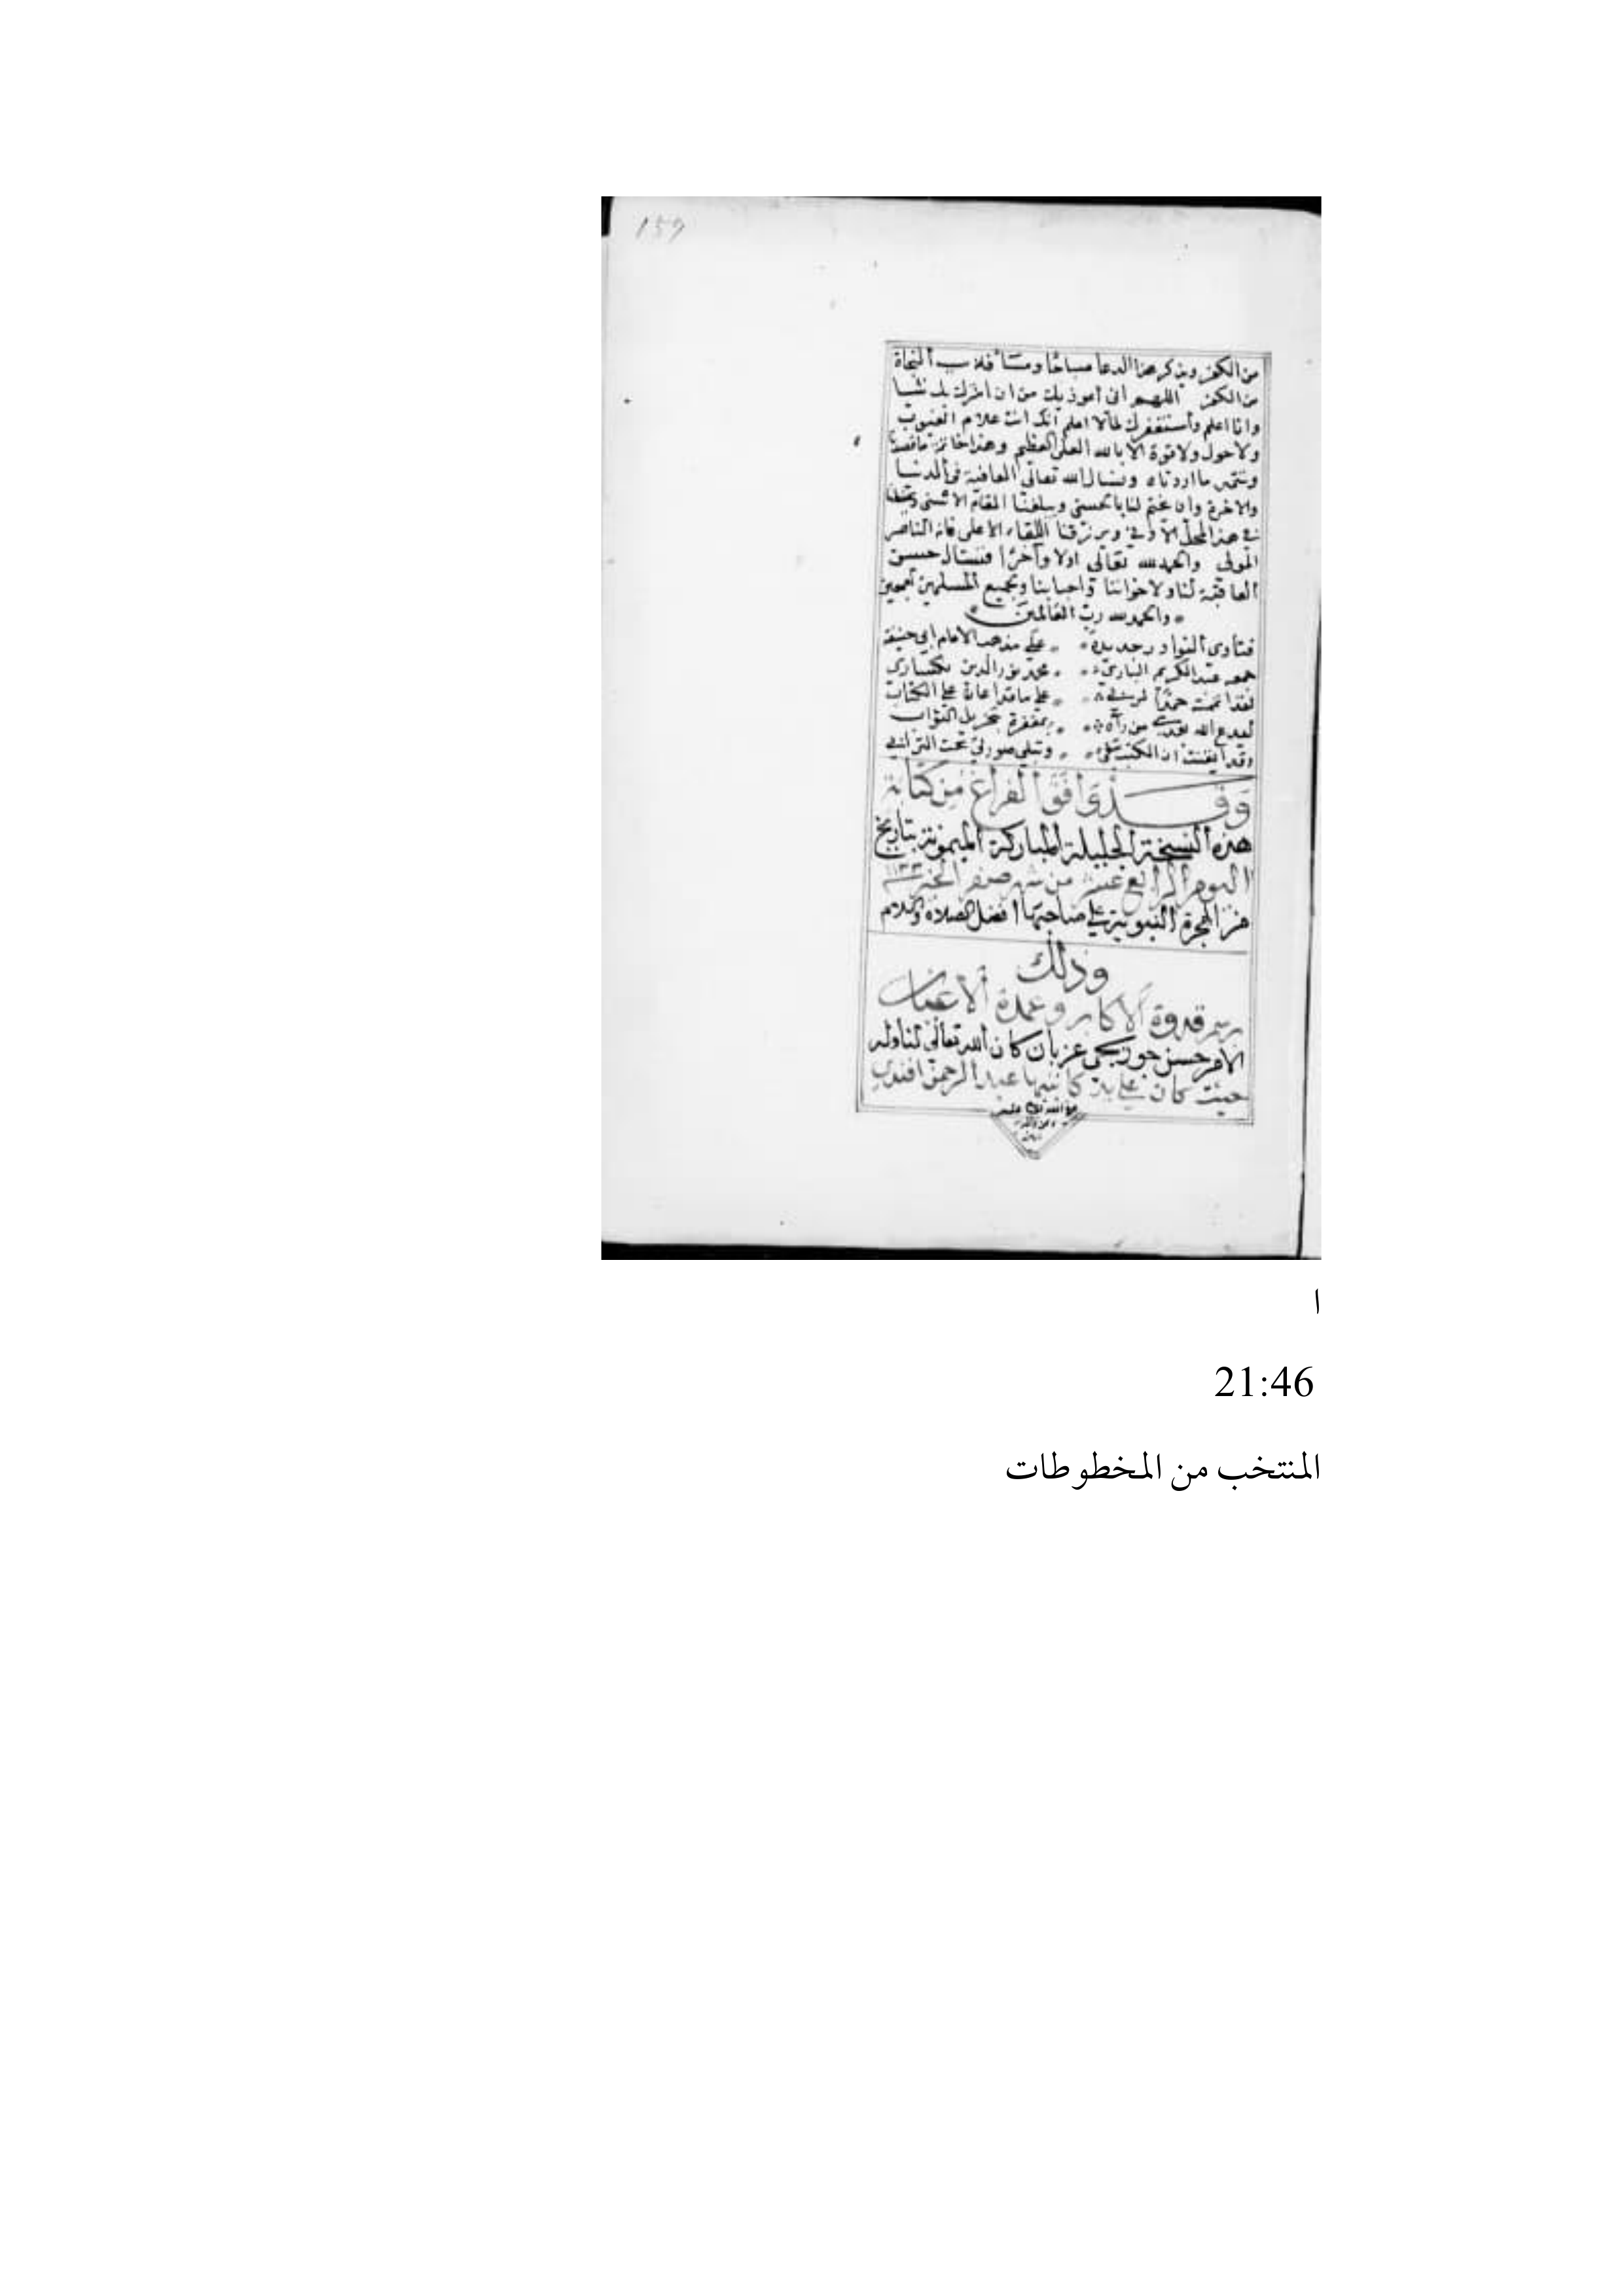 159
من الكفر ويذكر هذا الدعا صباحا ومسا فلاب النجاة
من الكفر اللهم انى اعوذ بك من ان اشرك بك شيا
وانا اعلم وأستغفرك لما لا اعلم انك انت علام الغيوب
ولا حول ولا قوة الا بالله العلى العظيم وهذا خاتمة ما قصدنا
وتتميم ما اردناه ونسال الله تعالى العافية فى الدنيا
والاخرة وان يختم لنا بالحسنى ويبلغنا المقام الاسنى
فى هذا المحل الأوفى ويرزقنا اللقاء الاعلى فانه الناصر
المولى والحمد لله تعالى اولا وآخرا فنسال حسن
العاقبة لنا ولاخواننا واحبابنا ولجميع المسلمين اجمعين
والحمد لله رب العالمين
فتاوى النوادر جديدة على مذهب الامام ابى حنيفه
جمعه عبد الكريم محمد بن نور الدين
لقد تمت حمدا لربى على ما قد اعان على الكتاب
ليدع الله بعدى من رآه بمغفرة بجزيل الثواب
وقد ايقنت ان الكتب تبقى وتبلى صورتى تحت التراب
وقد وافق الفراغ من كتابة
هذه النسخة الجليلة المباركة الميمونة بتاريخ
اليوم الرابع عشر من شهر صفر الخير ١١٣٣
من الهجرة النبوية على صاحبها افضل الصلاة والسلام
وذلك
برسم قدوة الاكابر وعمدة الأعيان
الامير حسن جوربجى عزبان كان الله تعالى لنا وله
حيث كان على يد كاتبها عبد الرحمن افندى
ا
21:46
المنتخب من المخطوطات